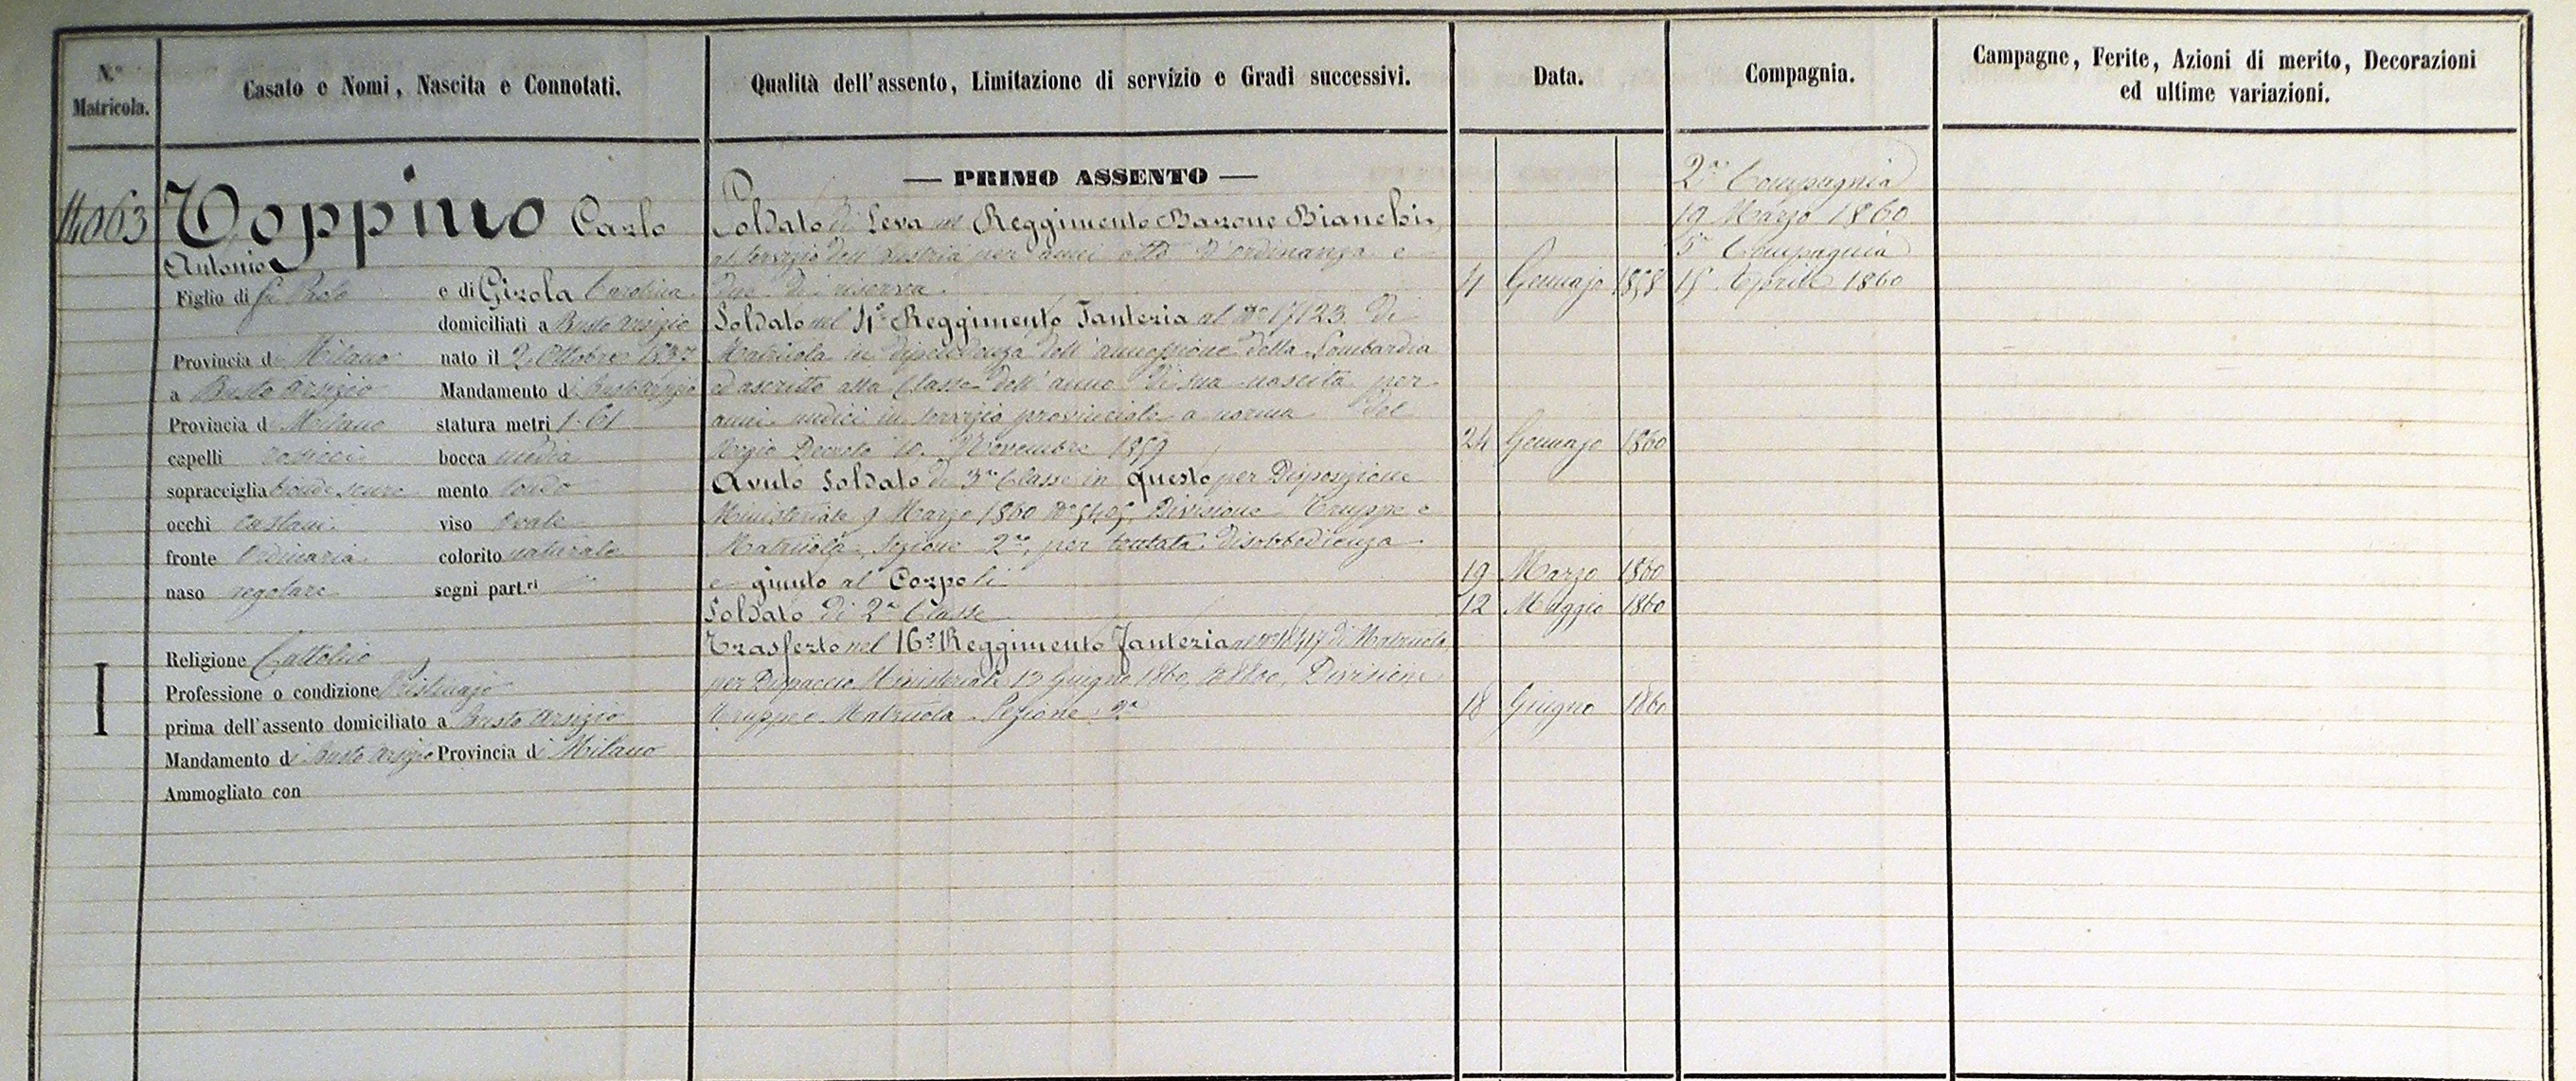 N.º Matricola.
Casato e Nomi, Nascita e Connotati.
Qualità dell'assento, Limitazione di servizio e Gradi successivi.
Data.
Compagnia.
Campagne, Ferite, Azioni di merito, Decorazioni
ed ultime variazioni.
14063
Toppino Carlo
Antonio
Figlio di fu Paolo e di Girola Carolina
domiciliati a Busto Arsizio
Provincia di Milano nato il 2 Ottobre 1837
a Busto Arsizio Mandamento di Busto Arsizio
Provincia di Milano statura metri 1.61
capelli bocca media
sopracciglia bionde scure mento tondo
occhi castani viso ovale
fronte ordinaria colorito naturale
naso regolare segni part.ri
Religione Cattolico
Professione o condizione Prestinajo
prima dell'assento domiciliato a Busto Arsizio
Mandamento di Busto Arsizio Provincia di Milano
Ammogliato con
I
— PRIMO ASSENTO —
Soldato di Leva nel Reggimento Barone Bianchi,
al servizio dell'Austria per anni otto d'ordinanza e
due di riserva. 4 Gennajo 1858
Soldato nel 4º Reggimento Fanteria al Nº 17123 di
Matricola in dipendenza dell'annessione della Lombardia
ed ascritto alla Classe dell'anno di sua nascita per
anni undici in servizio provinciale a norma del
Regio Decreto 10 Novembre 1859 24 Gennajo 1860
Avuto Soldato di 3ª Classe in questo per Disposizione
Ministeriale 9 Marzo 1860 Nº 5405, Divisione Truppe e
Matricola, Sezione 2ª, per tentata disobbedienza
e giunto al Corpo li 19 Marzo 1860
Soldato di 2ª Classe 12 Maggio 1860
Trasferto nel 16º Reggimento Fanteria al Nº 18417 di Matricola
per Dispaccio Ministeriale 13 Giugno 1860, Nº 8800, Divisione
Truppe e Matricola Sezione 2ª 18 Giugno 1860
2ª Compagnia
19 Marzo 1860
5ª Compagnia
15 Aprile 1860